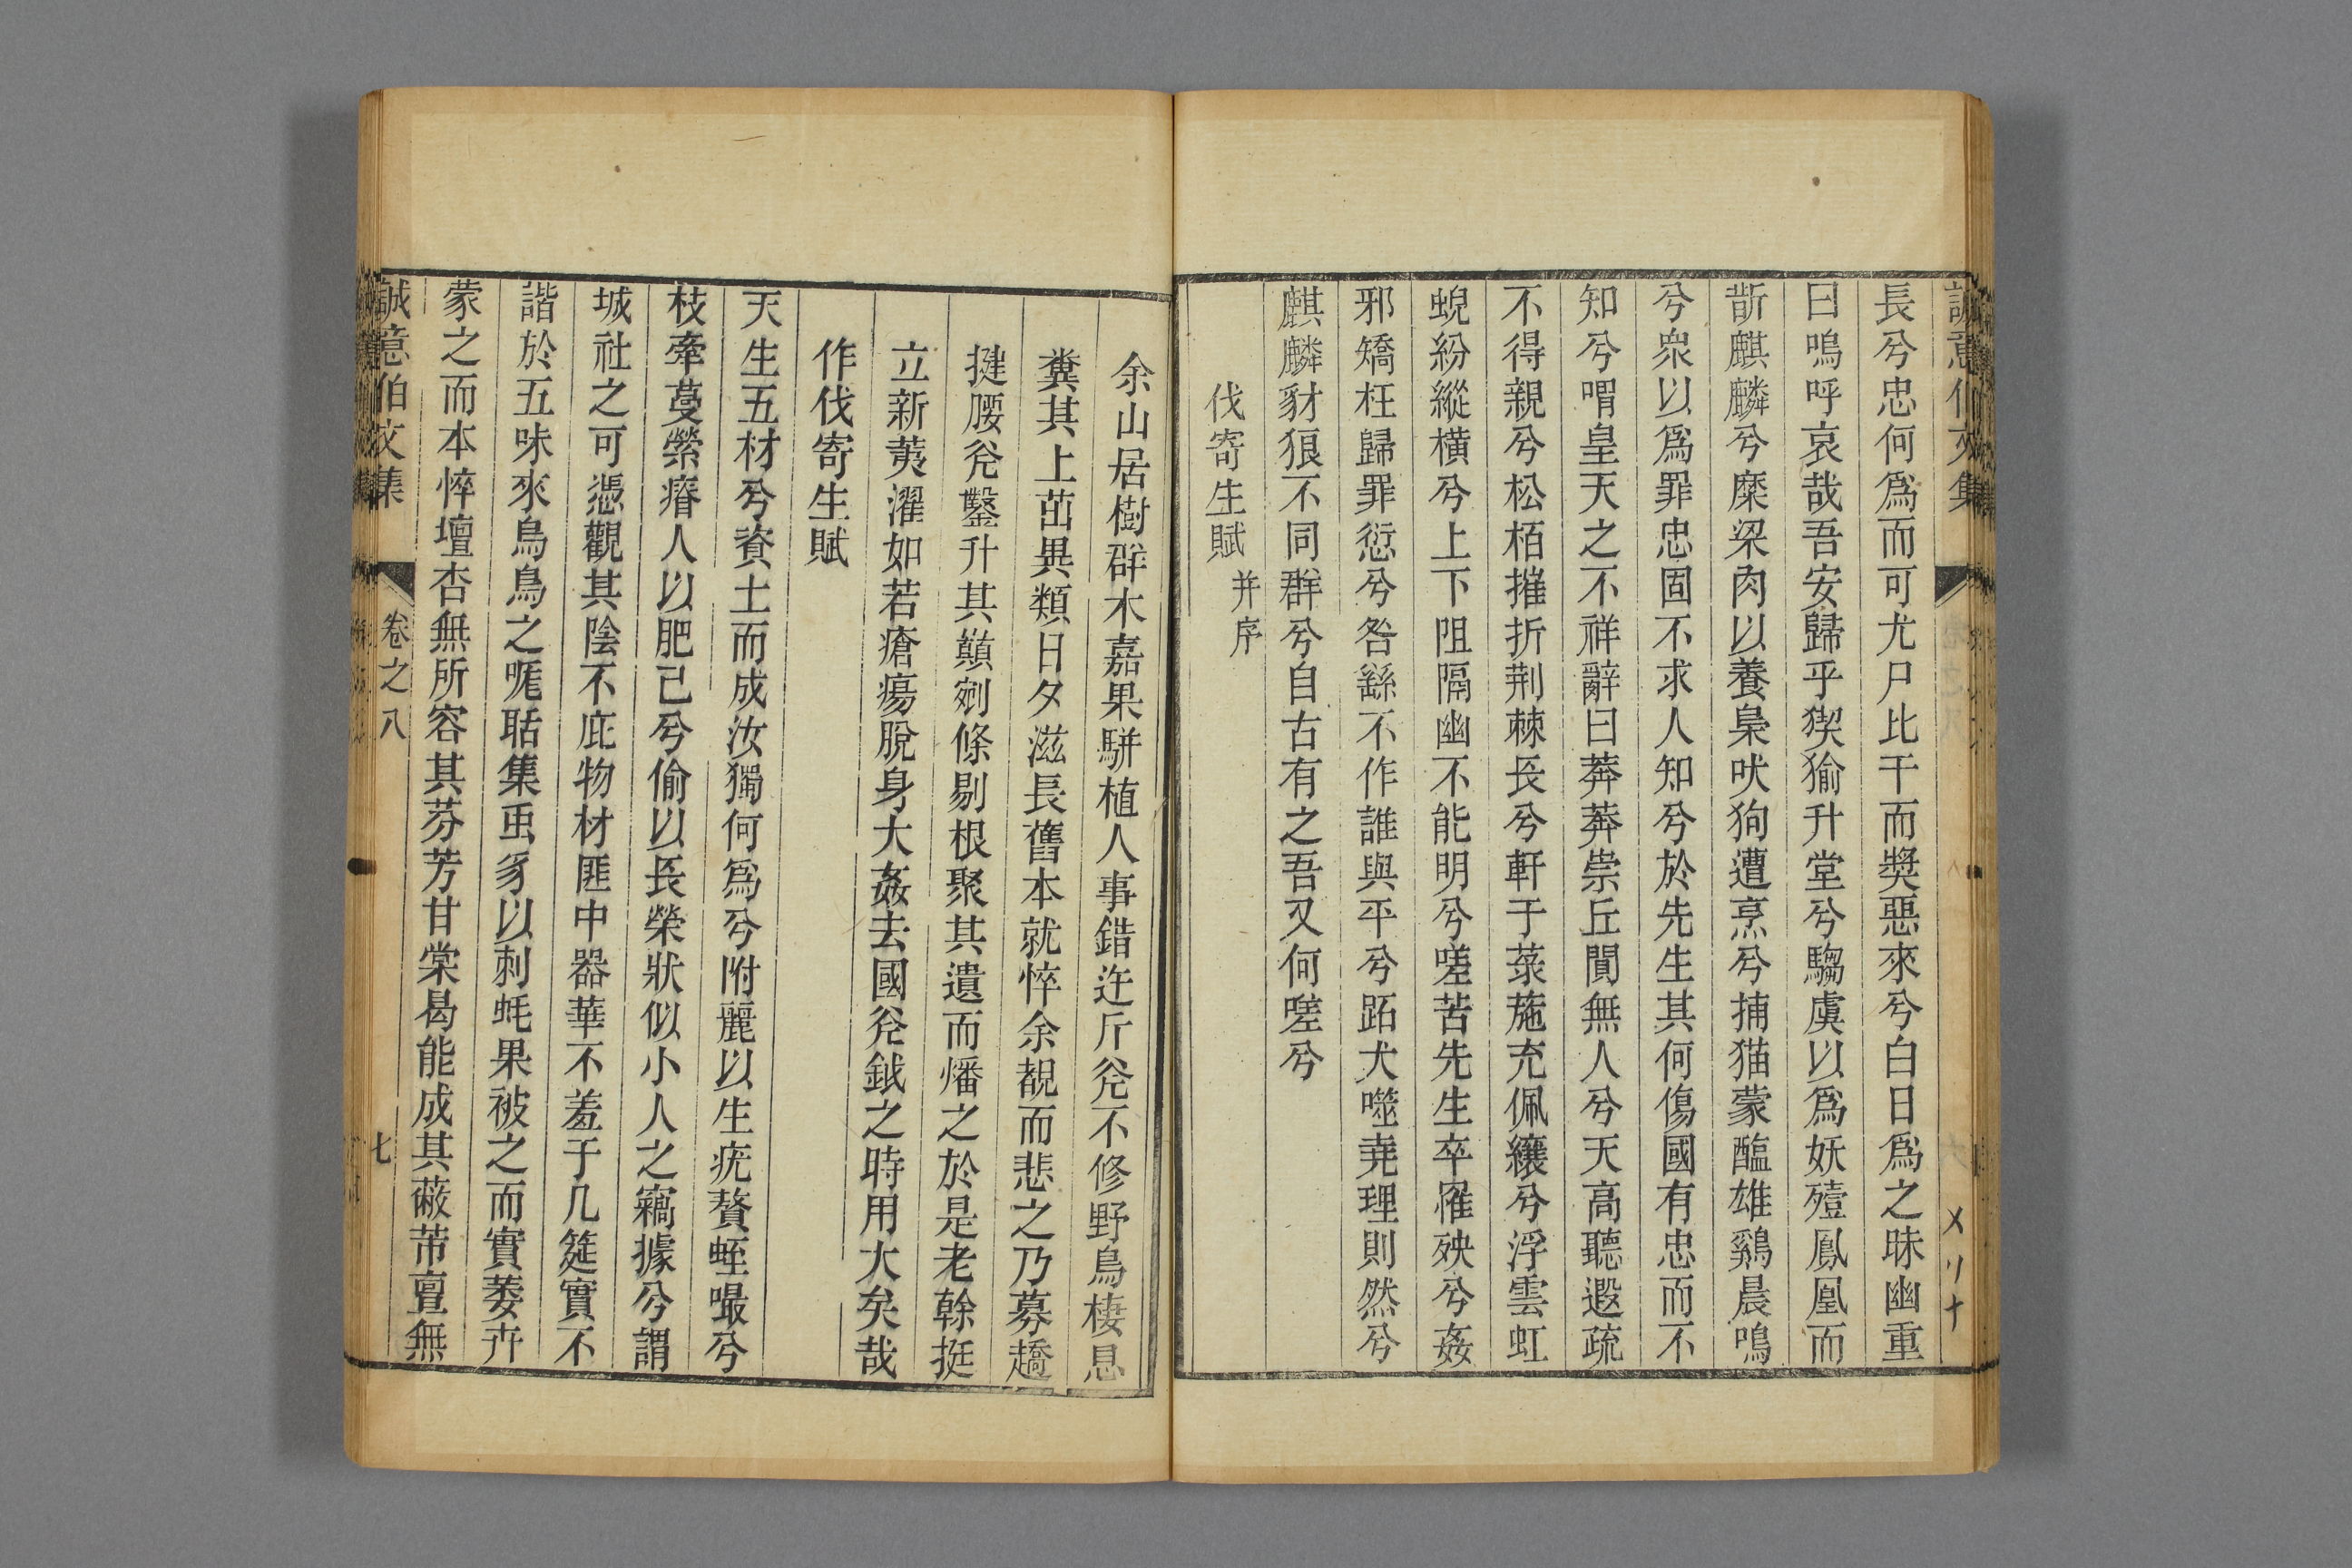 誠意伯文集
長兮忠何爲而可尤尸比干而奬惡來兮白日爲之昧幽重
曰嗚呼哀哉吾安歸乎猰㺄升堂兮騶虞以爲妖殪鳳凰而
斮麒麟兮糜粱肉以養梟吠狗遭烹兮捕猫蒙醢雄鷄晨鳴
兮衆以爲罪忠固不求人知兮於先生其何傷國有忠而不
知兮喟皇天之不祥辭曰莽莽崇丘閴無人兮天高聽遐疏
不得親兮松栢摧折荆棘長兮軒于菉葹充佩纕兮浮雲虹
蜺紛縱橫兮上下阻隔幽不能明兮嗟苦先生卒罹殃兮姦
邪矯枉歸罪愆兮咎繇不作誰與平兮跖犬噬堯理則然兮
麒麟豺狼不同群兮自古有之吾又何嗟兮
伐寄生賦 并序
余山居樹群木嘉果駢植人事錯迕斤斧不修野鳥棲息
糞其上茁異類日夕滋長舊本就悴余覩而悲之乃募趫
揵腰斧鑿升其巔剜條剔根聚其遺而燔之於是老榦挺
立新荑濯如若瘡瘍脫身大姦去國斧鉞之時用大矣哉
作伐寄生賦
天生五材兮資土而成汝獨何爲兮附麗以生疣贅蛭嘬兮
枝牽蔓縈瘠人以肥己兮偷以長榮狀似小人之竊據兮謂
城社之可憑觀其陰不庇物材匪中器華不羞于几筵實不
諧於五味來鳥鳥之嘔聒集䖝豸以刺蚝果被之而實萎卉
蒙之而本悴壇杏無所容其芬芳甘棠曷能成其蔽芾亶無
誠意伯文集 卷之八 七